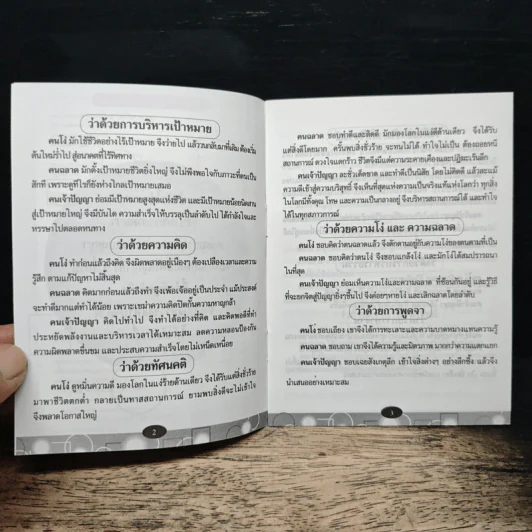 ว่าด้วยการบริหารเป้าหมาย
คนโง่ มักใช้ชีวิตอย่างไร้เป้าหมาย จึงว่ายไป แล้ววนกลับมาที่เดิม ต้องเริ่ม
ต้นใหม่ร่ำไป สู่อนาคตที่ไร้ทิศทาง
คนฉลาด มักตั้งเป้าหมายชีวิตยิ่งใหญ่ จึงไม่พึงพอใจกับภาวะที่ตนเป็น
สักที เพราะดูทีไรก็ยังห่างไกลเป้าหมายเสมอ
คนเจ้าปัญญา ย่อมมีเป้าหมายสูงสุดแห่งชีวิต และมีเป้าหมายน้อยนิดสาน
สู่เป้าหมายใหญ่ จึงมีบันได ความสำเร็จให้บรรลุเป็นลำดับไป ได้กำลังใจและ
หรรษาไปตลอดหนทาง
ว่าด้วยความคิด
คนโง่ ทำก่อนแล้วถึงคิด จึงผิดพลาดอยู่เนืองๆ ต้องเปลืองเวลาและความ
รู้สึก ตามแก้ปัญหาไม่สิ้นสุด
คนฉลาด คิดมากก่อนแล้วถึงทำ จึงเพ้อเจ้ออยู่เป็นประจำ แม้ประสงค์
จะทำดีมากแต่ทำได้น้อย เพราะเขม่าความคิดปิดกั้นความหาญกล้า
คนเจ้าปัญญา คิดไปทำไป จึงทำได้อย่างที่คิด และคิดพอดีที่ทำ
ประหยัดพลังงานและบริหารเวลาได้เหมาะสม ลดความหลอนป้องกัน
ความผิดพลาดขื่นขม และประสบความสำเร็จโดยไม่เหน็ดเหนื่อย
ว่าด้วยทัศนคติ
คนโง่ ดูหมิ่นความดี มองโลกในแง่ร้ายด้านเดียว จึงได้รับแต่สิ่งชั่วร้าย
มาพาชีวิตตกต่ำ กลายเป็นทาสสถานการณ์ ยามพบสิ่งดีจะไม่เข้าใจ
จึงพลาดโอกาสใหญ่
2
คนฉลาด ชอบทำดีและติดดี มักมองโลกในแง่ดีด้านเดียว จึงได้รับ
แต่สิ่งดีโดยมาก ครั้นพบสิ่งชั่วร้าย จะทนไม่ได้ ทำใจไม่เป็น ต้องถอยหนี
สถานการณ์ ดวงใจแตกร้าว ชีวิตจึงมีแต่ความระคายเคืองและปฏิฆะเร้นลึก
คนเจ้าปัญญา ละชั่วเด็ดขาด และทำดีเป็นนิสัย โดยไม่ติดดี แล้วละแม้
ความดีเข้าสู่ความบริสุทธิ์ จึงเห็นที่สุดแห่งความเป็นจริงแท้แห่งโลกว่า ทุกสิ่ง
ในโลกมีทั้งคุณ โทษ และความเป็นกลางอยู่ จึงบริหารสถานการณ์ได้ และทำใจ
ได้ในทุกสภาวการณ์
ว่าด้วยความโง่ และ ความฉลาด
คนโง่ ชอบคิดว่าตนฉลาดแล้ว จึงดักดานอยู่กับความโง่ของตนตามที่เป็น
คนฉลาด ชอบคิดว่าตนโง่ จึงชอบแกล้งโง่ และมักโง่ได้สมปรารถนา
ในที่สุด
คนเจ้าปัญญา ย่อมเห็นความโง่และความฉลาด ที่ซ้อนกันอยู่ และรู้วิธี
ที่จะยกจิตสู่ปัญญายิ่งๆขึ้นไป จึงค่อยๆหายโง่ และเลิกฉลาดโดยลำดับ
ว่าด้วยการพูดจา
คนโง่ ชอบเถียง เขาจึงได้การทะเลาะและความบาดหมางแทนความรู้
คนฉลาด ชอบถาม เขาจึงได้ความรู้และมิตรภาพ มากกว่าความแตกแยก
คนเจ้าปัญญา ชอบเจอสังเกตุลึก เข้าใจสิ่งต่างๆ อย่างลึกซึ้ง แล้วจึง
นำเสนออย่างเหมาะสม
3